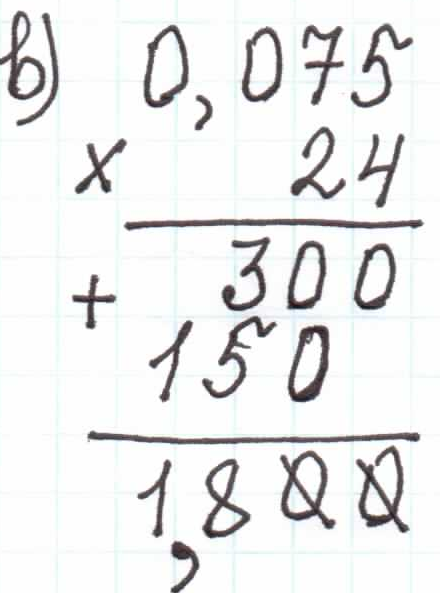 в) 0,075
× 24
+ 300
150
1,800